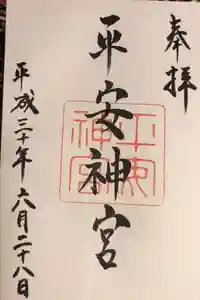 奉拝
平安神宮
平成三十年六月二十八日